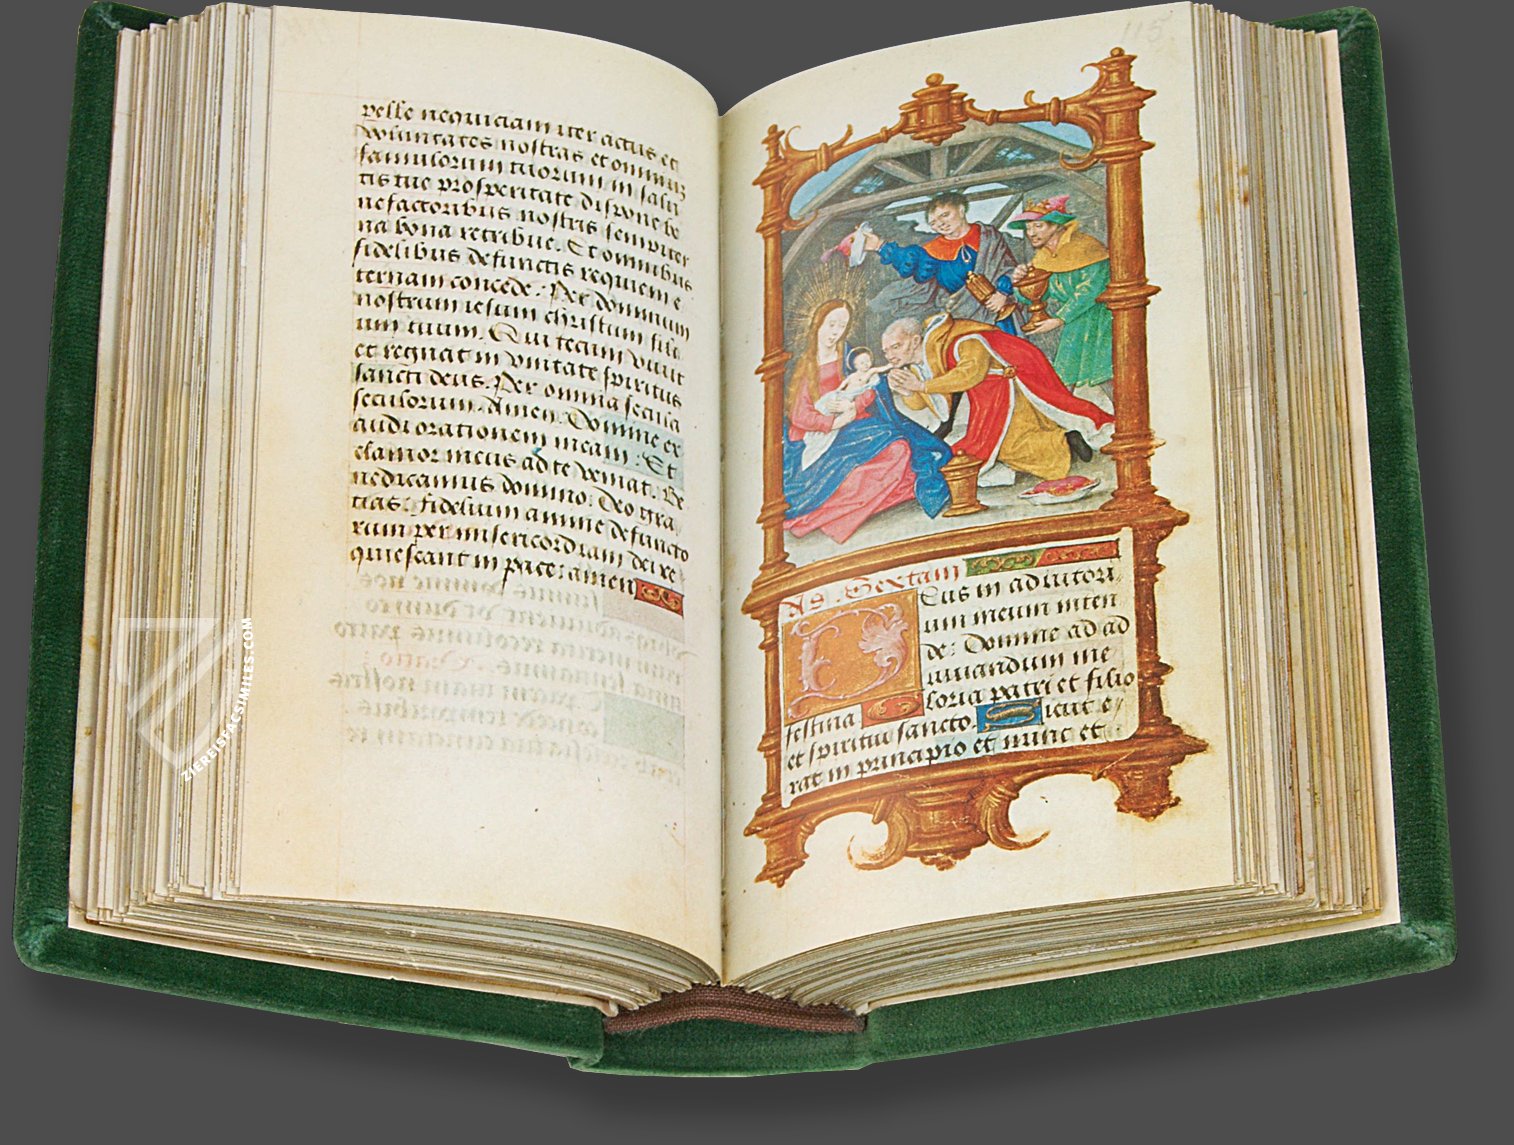 pelle nequiciam iter actus et
voluntates nostras et omnium
famulorum tuorum in salu
tis tue prosperitate dispone be
nefactoribus nostris sempiter
na bona retribue. Et omnibus
fidelibus defunctis requiem e
ternam concede. Per dominum
nostrum iesum christum fili
um tuum. Qui tecum vivit
et regnat in unitate spiritus
sancti deus. Per omnia secula
seculorum. Amen. Domine ex
audi orationem meam. Et
clamor meus ad te veniat. Be
nedicamus domino. Deo gra
tias. fidelium anime defuncto
rum per misericordiam dei re
quiescant in pace: amen
115
Ad. Sextam
Deus in adiutori
um meum inten
de: Domine ad ad
iuvandum me
festina Gloria patri et filio
et spiritui sancto. Sicut e
rat in principio et nunc et
ZIEREISFACSIMILES.COM